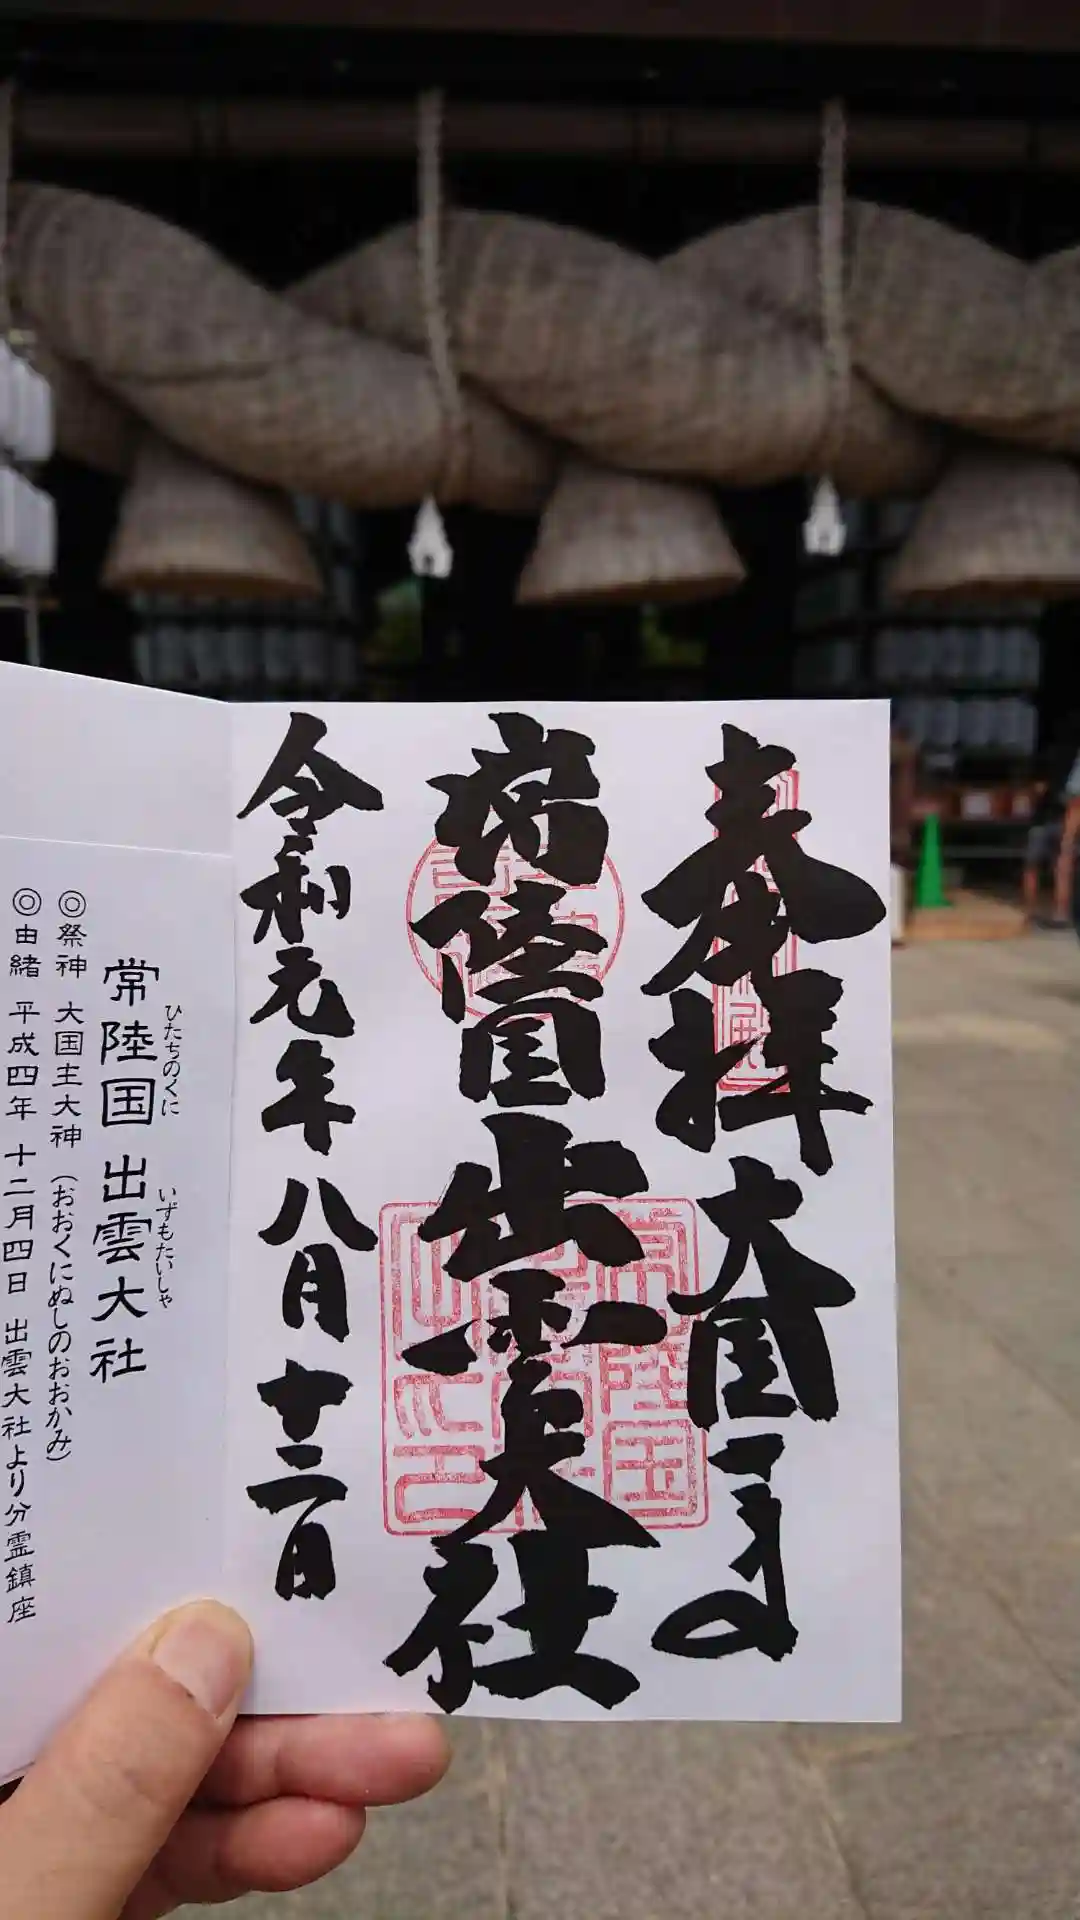 奉拝 大国主大神
常陸国 出雲大社
令和元年 八月 十二日
常陸国 出雲大社
ひたちのくに いずもたいしゃ
◎祭神 大国主大神 (おおくにぬしのおおかみ)
◎由緒 平成四年 十二月四日 出雲大社より分霊鎮座